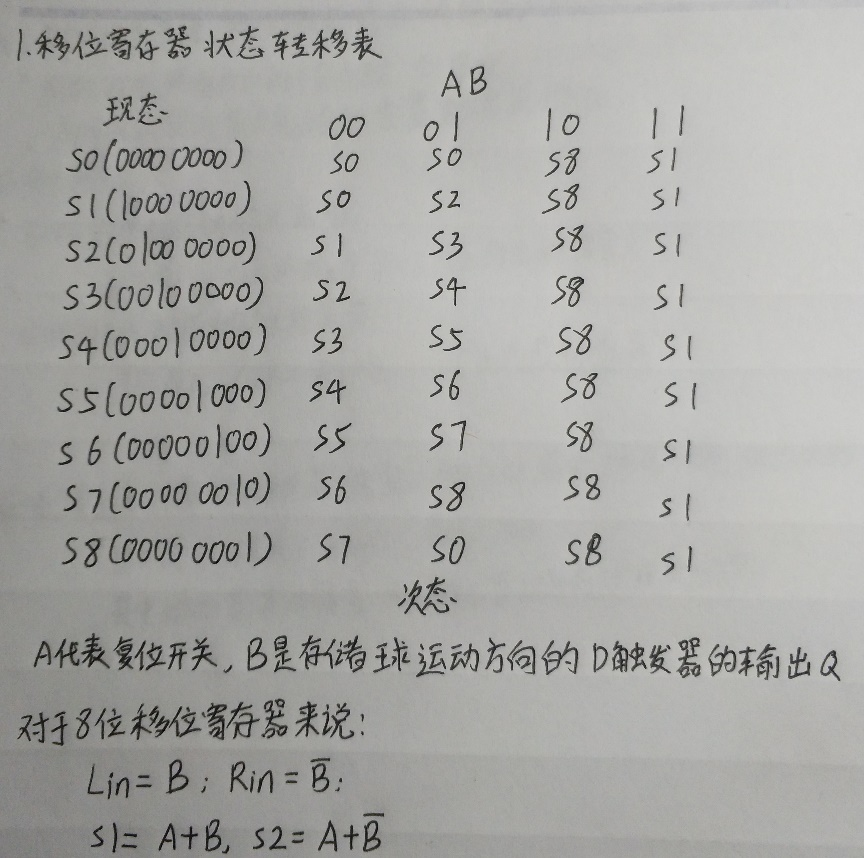 1.移位寄存器 状态转移表
AB
现态 00 01 10 11
S0(0000 0000) S0 S0 S8 S1
S1(1000 0000) S0 S2 S8 S1
S2(0100 0000) S1 S3 S8 S1
S3(0010 0000) S2 S4 S8 S1
S4(0001 0000) S3 S5 S8 S1
S5(00001000) S4 S6 S8 S1
S6(00000100) S5 S7 S8 S1
S7(0000 0010) S6 S8 S8 S1
S8(0000 0001) S7 S0 S8 S1
次态
A代表复位开关,B是存储球运动方向的D触发器的输出Q
对于8位移位寄存器来说:
Lin= B; Rin = B̅;
S1= A+B, S2= A+B̅